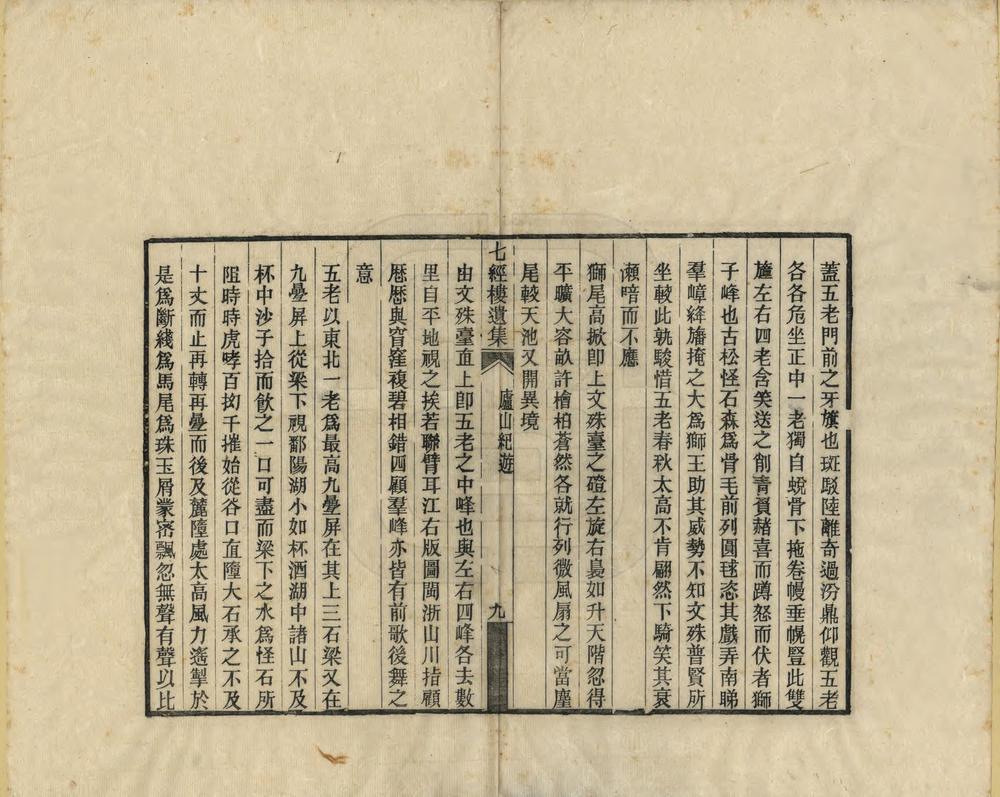 蓋五老門前之牙旗也斑駁陸離奇過汾鼎仰觀五老
各各危坐正中一老獨自蛻骨下拖卷幔垂幌豎此雙
旛左右四老含笑送之削青賁赭喜而蹲怒而伏者獅
子峰也古松怪石森爲骨毛前列圓毬恣其戲弄南睇
羣嶂絳旛掩之大爲獅王助其威勢不知文殊普賢所
坐較此孰駿惜五老春秋太高不肯翩然下騎笑其衰
瀨喑而不應
獅尾高掀卽上文殊臺之磴左旋右裊如升天階忽得
平曠大容畝許檜柏蒼然各就行列微風扇之可當麈
尾較天池又開異境
七經樓遺集
廬山紀遊
九
由文殊臺直上卽五老之中峰也與左右四峰各去數
里自平地視之挨若聯臂耳江右版圖閩浙山川指顧
歷歷與窅窪複碧相錯四顧羣峰亦皆有前歌後舞之
意
五老以東北一老爲最高九疊屏在其上三石梁又在
九疊屏上從梁下視鄱陽湖小如杯酒湖中諸山不及
杯中沙子拾而飮之一口可盡而梁下之水爲怪石所
阻時時虎哮百拗千摧始從谷口直墮大石承之不及
十丈而止再轉再疊而後及麓墮處太高風力遙掣於
是爲斷綫爲馬尾爲珠玉屑蒙密飄忽無聲有聲以比